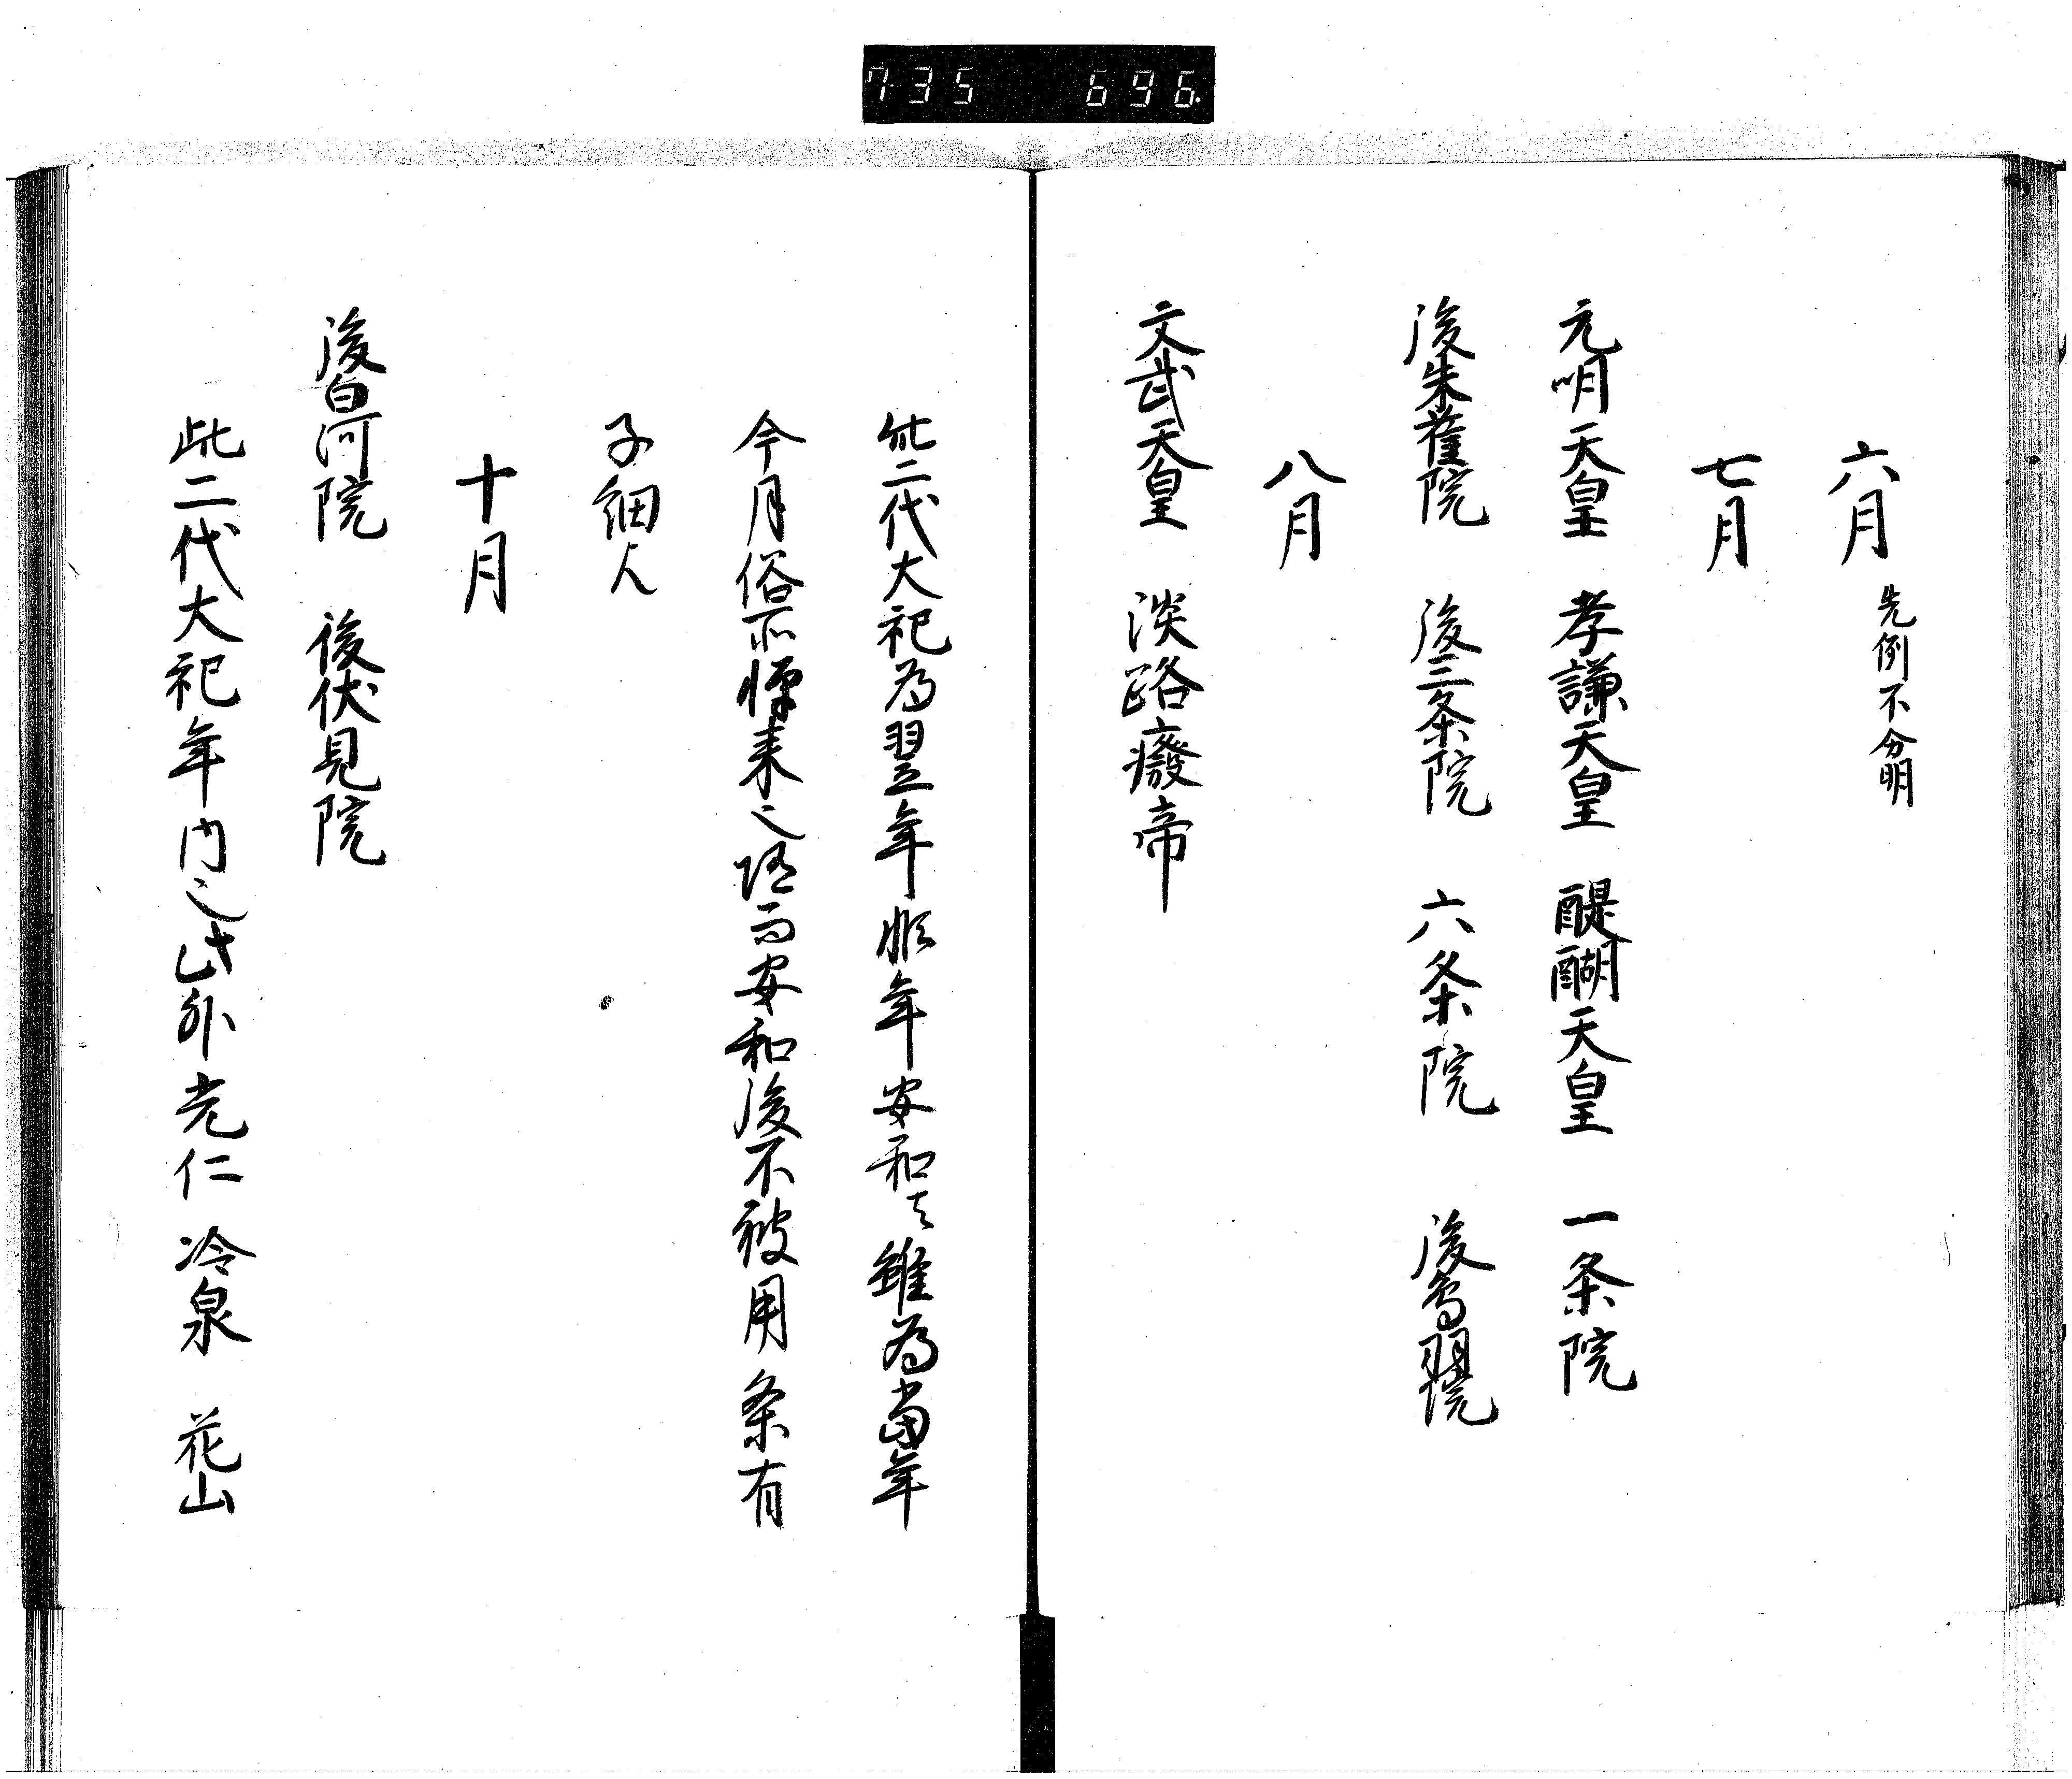 735 696
六月 先例不分明
七月
元明天皇 孝謙天皇 醍醐天皇 一条院
後朱雀院 後三条院 六条院 後鳥羽院
八月
文武天皇 淡路廃帝
此二代大祀為翌年 年安和 雖為当年
今月俗所憚来之 而安和後不被用条有
子細
十月
後白河院 後伏見院
此二代大祀年内之 此外光仁 冷泉 花山